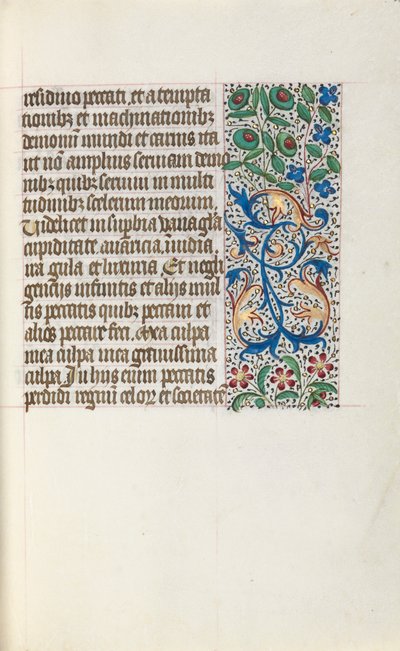 residuo peccati et a tempta
tionibz et machinationibz
demonu mundi et carnis ita
ut no amplius seruiam demo
nibz quibz seruiui in multi
tudinibz scelerum meorum
Videlicet in supbia vana gla
cupiditate auaricia inuidia
ira gula et luxuria Et negli
gentijs infinitis et alijs mul
tis peccatis quibz peccaui et
alios peccare feci Mea culpa
mea culpa mea grauissima
culpa In hijs enim peccatis
perdidi regnu celor et societate